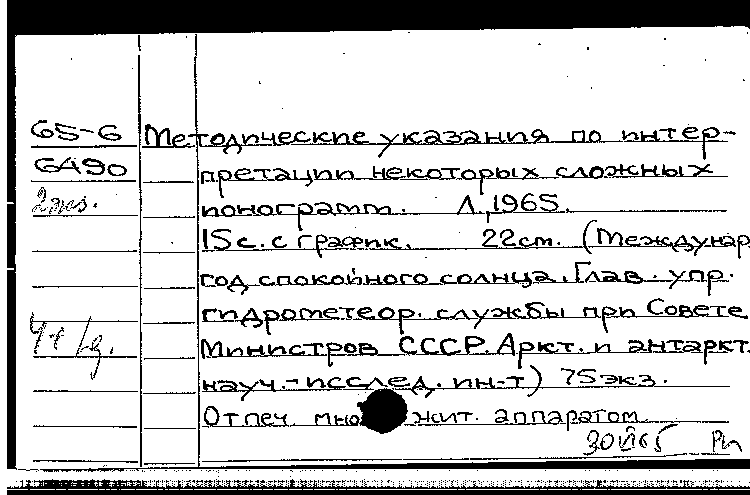 65-6 Методические указания по интер-
6490 претации некоторых сложных
2экз. ионограмм. Л., 1965.
15с. с график. 22см. (Междунар.
год спокойного солнца. Глав. упр.
гидрометеор. службы при Совете
Министров СССР. Аркт. и антаркт.
науч.-исслед. ин-т) 75экз.
Отпеч. множит. аппаратом